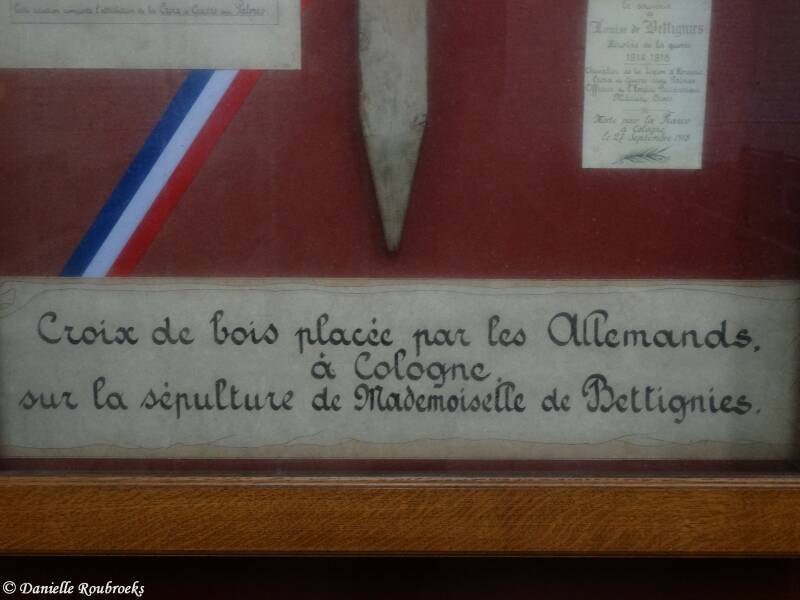 Cette citation comporte l'attribution de la Croix de Guerre avec Palmes
Louise de Bettignies
Héroïne de la guerre
1914-1918
Chevalier de la Légion d'Honneur
Croix de Guerre avec Palmes
Officier de l'Empire Britannique
Military Cross
Morte pour la France
à Cologne
le 27 Septembre 1918
Croix de bois placée par les Allemands,
à Cologne,
sur la sépulture de Mademoiselle de Bettignies.
© Danielle Roubroeks